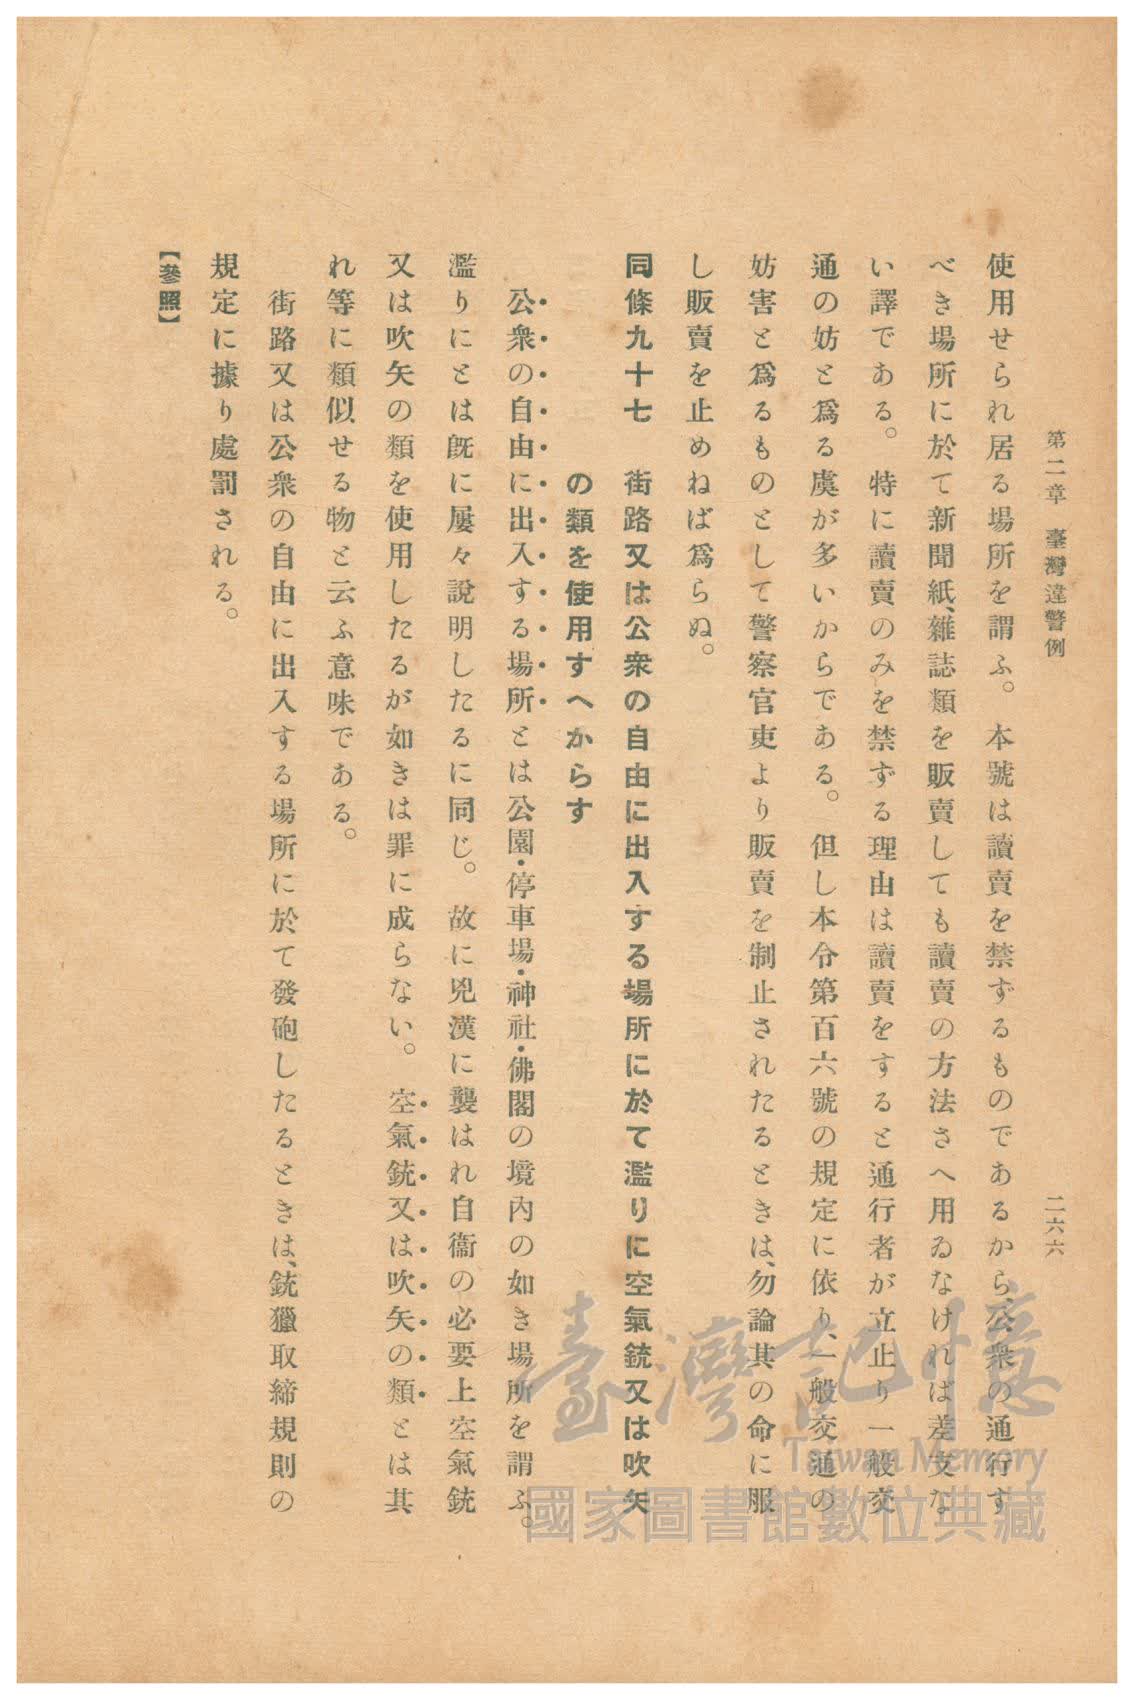 第二章　臺灣違警例　二六六
使用せられ居る場所を謂ふ。本號は讀賣を禁ずるものであるから、公衆の通行す
べき場所に於て新聞紙、雜誌類を販賣しても讀賣の方法さへ用ゐなければ差支な
い譯である。特に讀賣のみを禁ずる理由は讀賣をすると通行者が立止り一般交
通の妨と爲る虞が多いからである。但し本令第百六號の規定に依り、一般交通の
妨害と爲るものとして警察官吏より販賣を制止されたるときは、勿論其の命に服
し販賣を止めねば爲らぬ。
同條九十七　街路又は公衆の自由に出入する場所に於て濫りに空氣銃又は吹矢
の類を使用すへからす
公衆の自由に出入する場所とは公園・停車場・神社・佛閣の境內の如き場所を謂ふ。
濫りにとは旣に屢々說明したるに同じ。故に兇漢に襲はれ自衞の必要上空氣銃
又は吹矢の類を使用したるが如きは罪に成らない。空氣銃又は吹矢の類とは其
れ等に類似せる物と云ふ意味である。
街路又は公衆の自由に出入する場所に於て發砲したるときは、銃獵取締規則の
規定に據り處罰される。
【參照】
臺灣記憶
Taiwan Memory
國家圖書館數位典藏